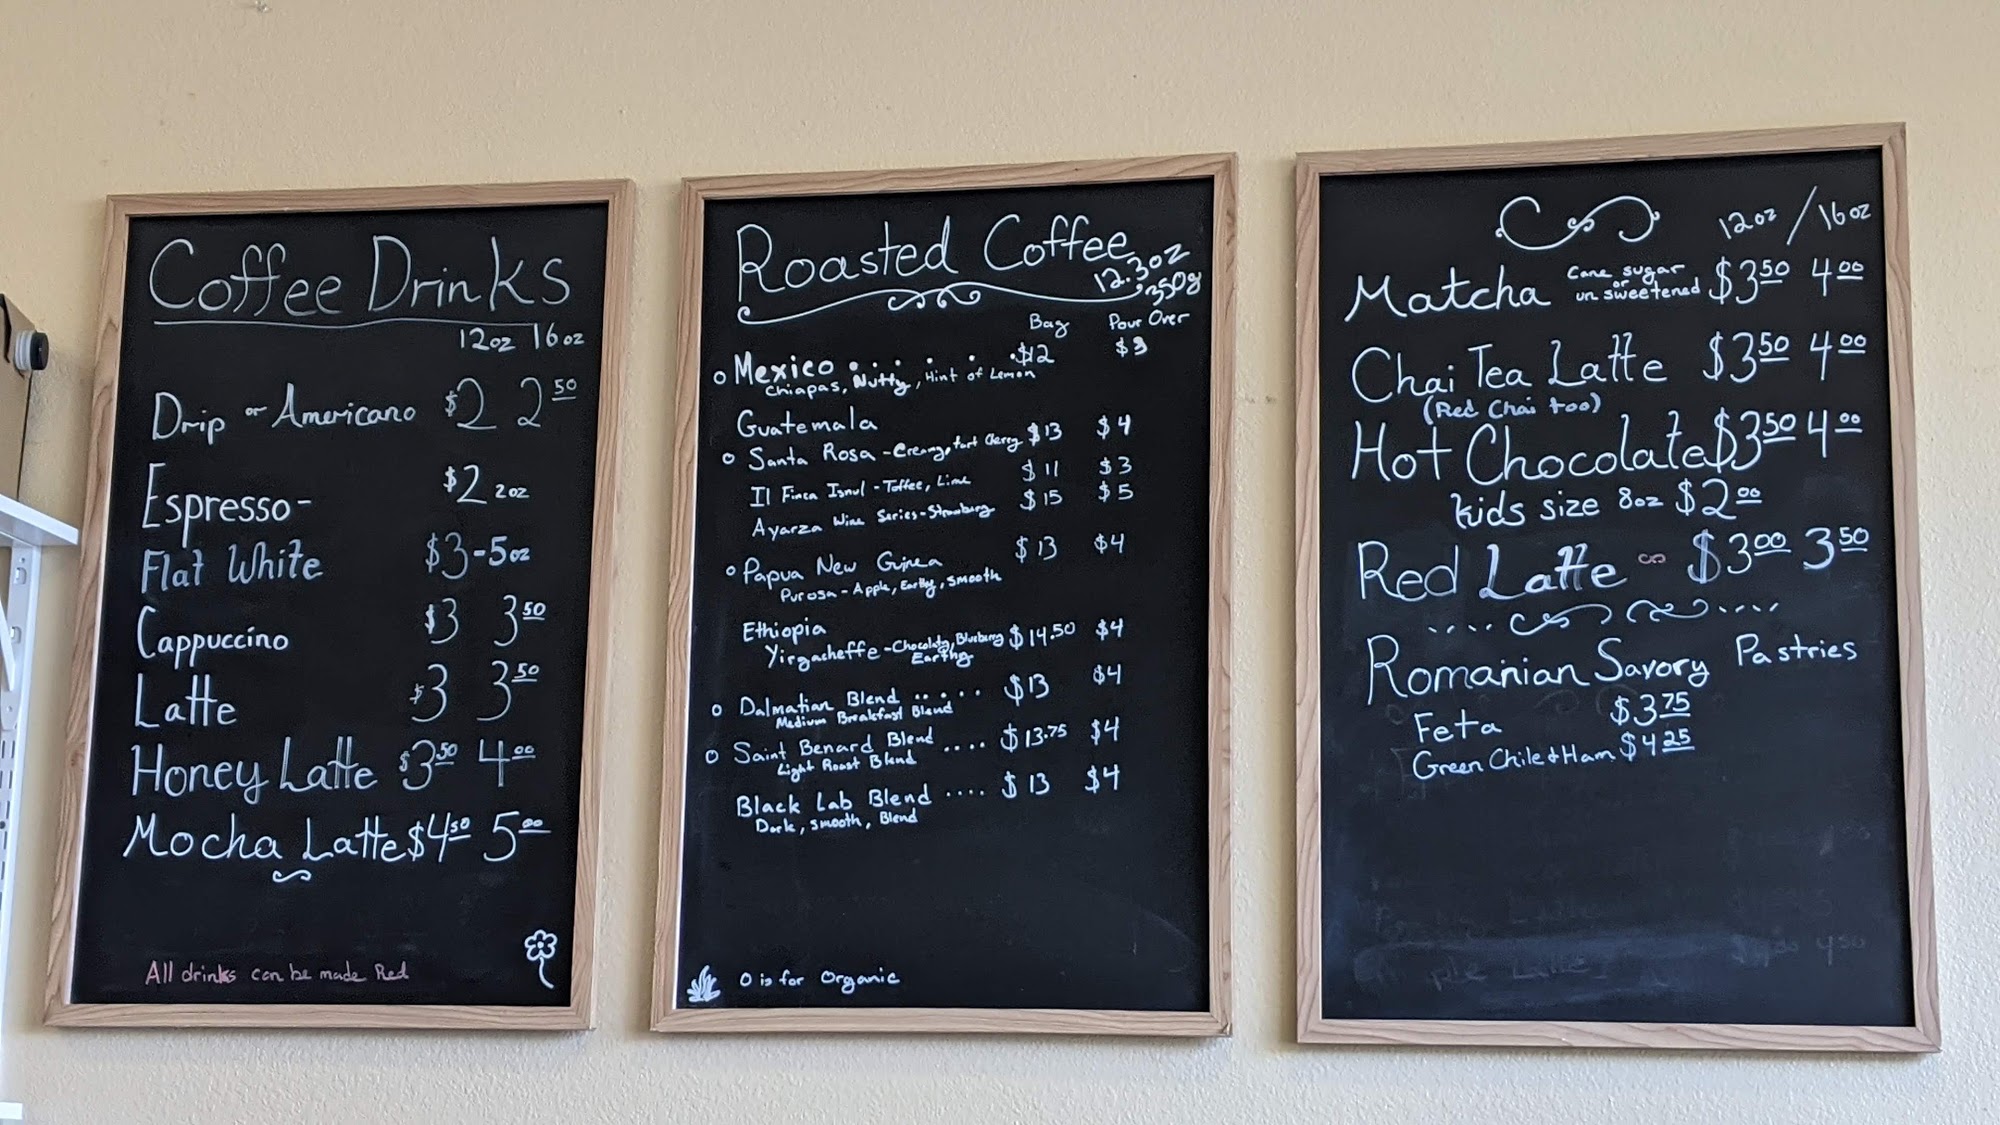 Coffee Drinks
12oz 16oz
Drip or Americano $2 2 50
Espresso- $2 2oz
Flat White $3-5oz
Cappuccino $3 3 50
Latte $3 3 50
Honey Latte $3 50 4 00
Mocha Latte $4 50 5 00
All drinks can be made Red
Roasted Coffee
12.3oz
350g
Bag Pour Over
o Mexico ...... $12 $3
Chiapas, Nutty, Hint of Lemon
Guatemala
o Santa Rosa - Creamy, Tart Cherry $13 $4
Il Finca Isnul - Toffee, Lime $11 $3
Ayarza Wine Series - Strawberry $15 $5
o Papua New Guinea $13 $4
Purosa - Apple, Earthy, smooth
Ethiopia $14.50 $4
Yirgacheffe - Chocolaty, Blueberry
Earthy
o Dalmatian Blend ..... $13 $4
Medium Breakfast Blend
o Saint Benard Blend .... $13.75 $4
Light Roast Blend
Black Lab Blend .... $13 $4
Dark, smooth, Blend
O is for Organic
12oz / 16oz
Matcha cane sugar or unsweetened $3 50 4 00
Chai Tea Latte $3 50 4 00
(Red Chai too)
Hot Chocolate $3 50 4 00
kids size 8oz $2 00
Red Latte $3 00 3 50
Romanian Savory Pastries
Feta $3 75
Green Chile & Ham $4 25